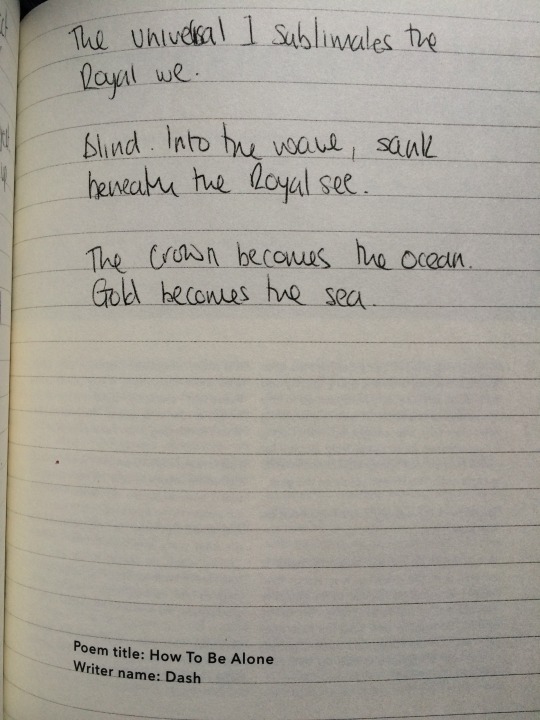 The universal I sublimates the
Royal we.
Blind. Into the wave, sank
beneath the Royal see.
The Crown becomes the ocean.
Gold becomes the sea.
Poem title: How To Be Alone
Writer name: Dash